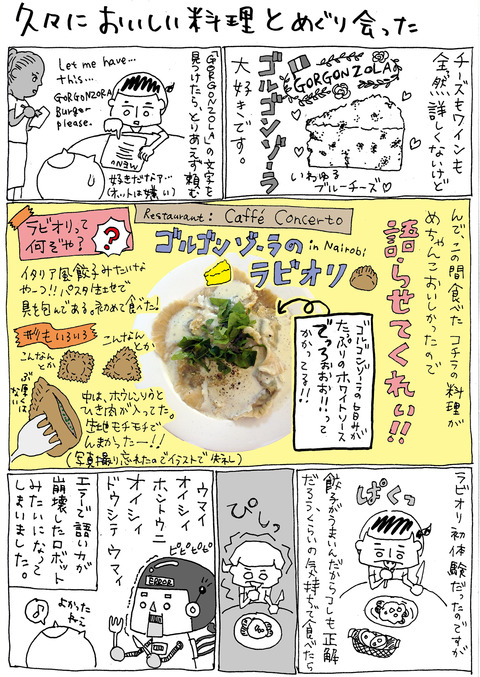 久々においしい料理とめぐり会った
チーズもワインも
全然詳しくないけど
GORGONZOLA
ゴルゴンゾーラ
大好きです。
いわゆる
ブルーチーズ♡
「GORGONZOLA」の文字を
見つけたら、とりあえず頼む
Let me have...
this...
GORGONZORA
Burger
please.
NEW
好きだなァ…
(ホットは嫌い)
Restaurant: Caffé Concerto
in Nairobi
ゴルゴンゾーラの
ラビオリ
んで、この間食べたコチラの料理が
めちゃんこおいしかったので
語らせてくれぃ!!
ゴルゴンゾーラの旨みが
たっぷりのホワイトソース
でっろぉぉぉ!!って
かかってる!!
ラビオリって
何ぞや?
イタリア風餃子みたいな
やーつ!!パスタ生地で
具を包んである。初めて食べた!
形もいろいろ
こんなん
とか
こんなん
とか
ぶ厚くは
ない
中は、ホウレンソウと
ひき肉が入ってた。
生地モチモチで
んまかったー!!
(写真撮り忘れたのでイラストで失礼)
ラビオリ初体験だったのですが
ぱくっ
餃子がうまいんだからコレも正解
だろう、くらいの気持ちで食べたら
ぴしっ
ウマイ
オイシイ
ホントウニ
オイシイ
ドウシテ ウマイ
ピピピピ
ERROR
エラーで語い力が
崩壊したロボット
みたいになって
しまいました。
よかった
ねぇ